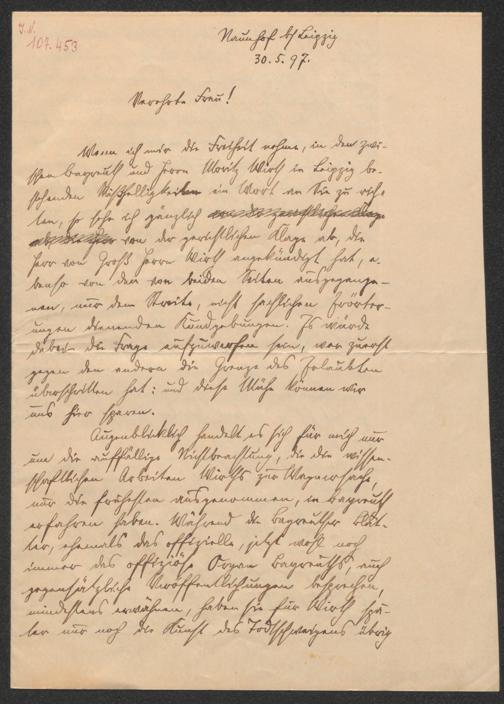 I.N.
107.453
Naunhof b/Leipzig
30.5.97.
Verehrte Frau!
Wenn ich mir die Freiheit nehme, in den zwi-
schen Bayreuth und Herrn Moritz Wirth in Leipzig be-
stehenden Mißhelligkeiten ein Wort an Sie zu rich-
ten, so sehe ich gänzlich
von der gerichtlichen Klage ab, die
Herr von Groß Herrn Wirth angekündigt hat, e-
benso von den von beiden Seiten ausgegange-
nen, nur dem Streite, nicht sachlichen Erörter-
ungen dienenden Kundgebungen. Es würde
dabei die Frage aufzuwerfen sein, wer zuerst
gegen den andern die Grenze des Erlaubten
überschritten hat: und diese Mühe können wir
uns hier sparen.
Augenblicklich handelt es sich für mich nur
um die auffällige Nichtbeachtung, die die wissen-
schaftlichen Arbeiten Wirths zur Wagnersache,
nur die frühesten ausgenommen, in Bayreuth
erfahren haben. Während die Bayreuther Blät-
ter, ehemals das offizielle, jetzt wohl noch
immer das offiziöse Organ Bayreuths, auch
gegensätzliche Veröffentlichungen besprechen,
mindestens erwähnen, haben sie für Wirth spä-
ter nur noch die Kunst des Todtschweigens übrig